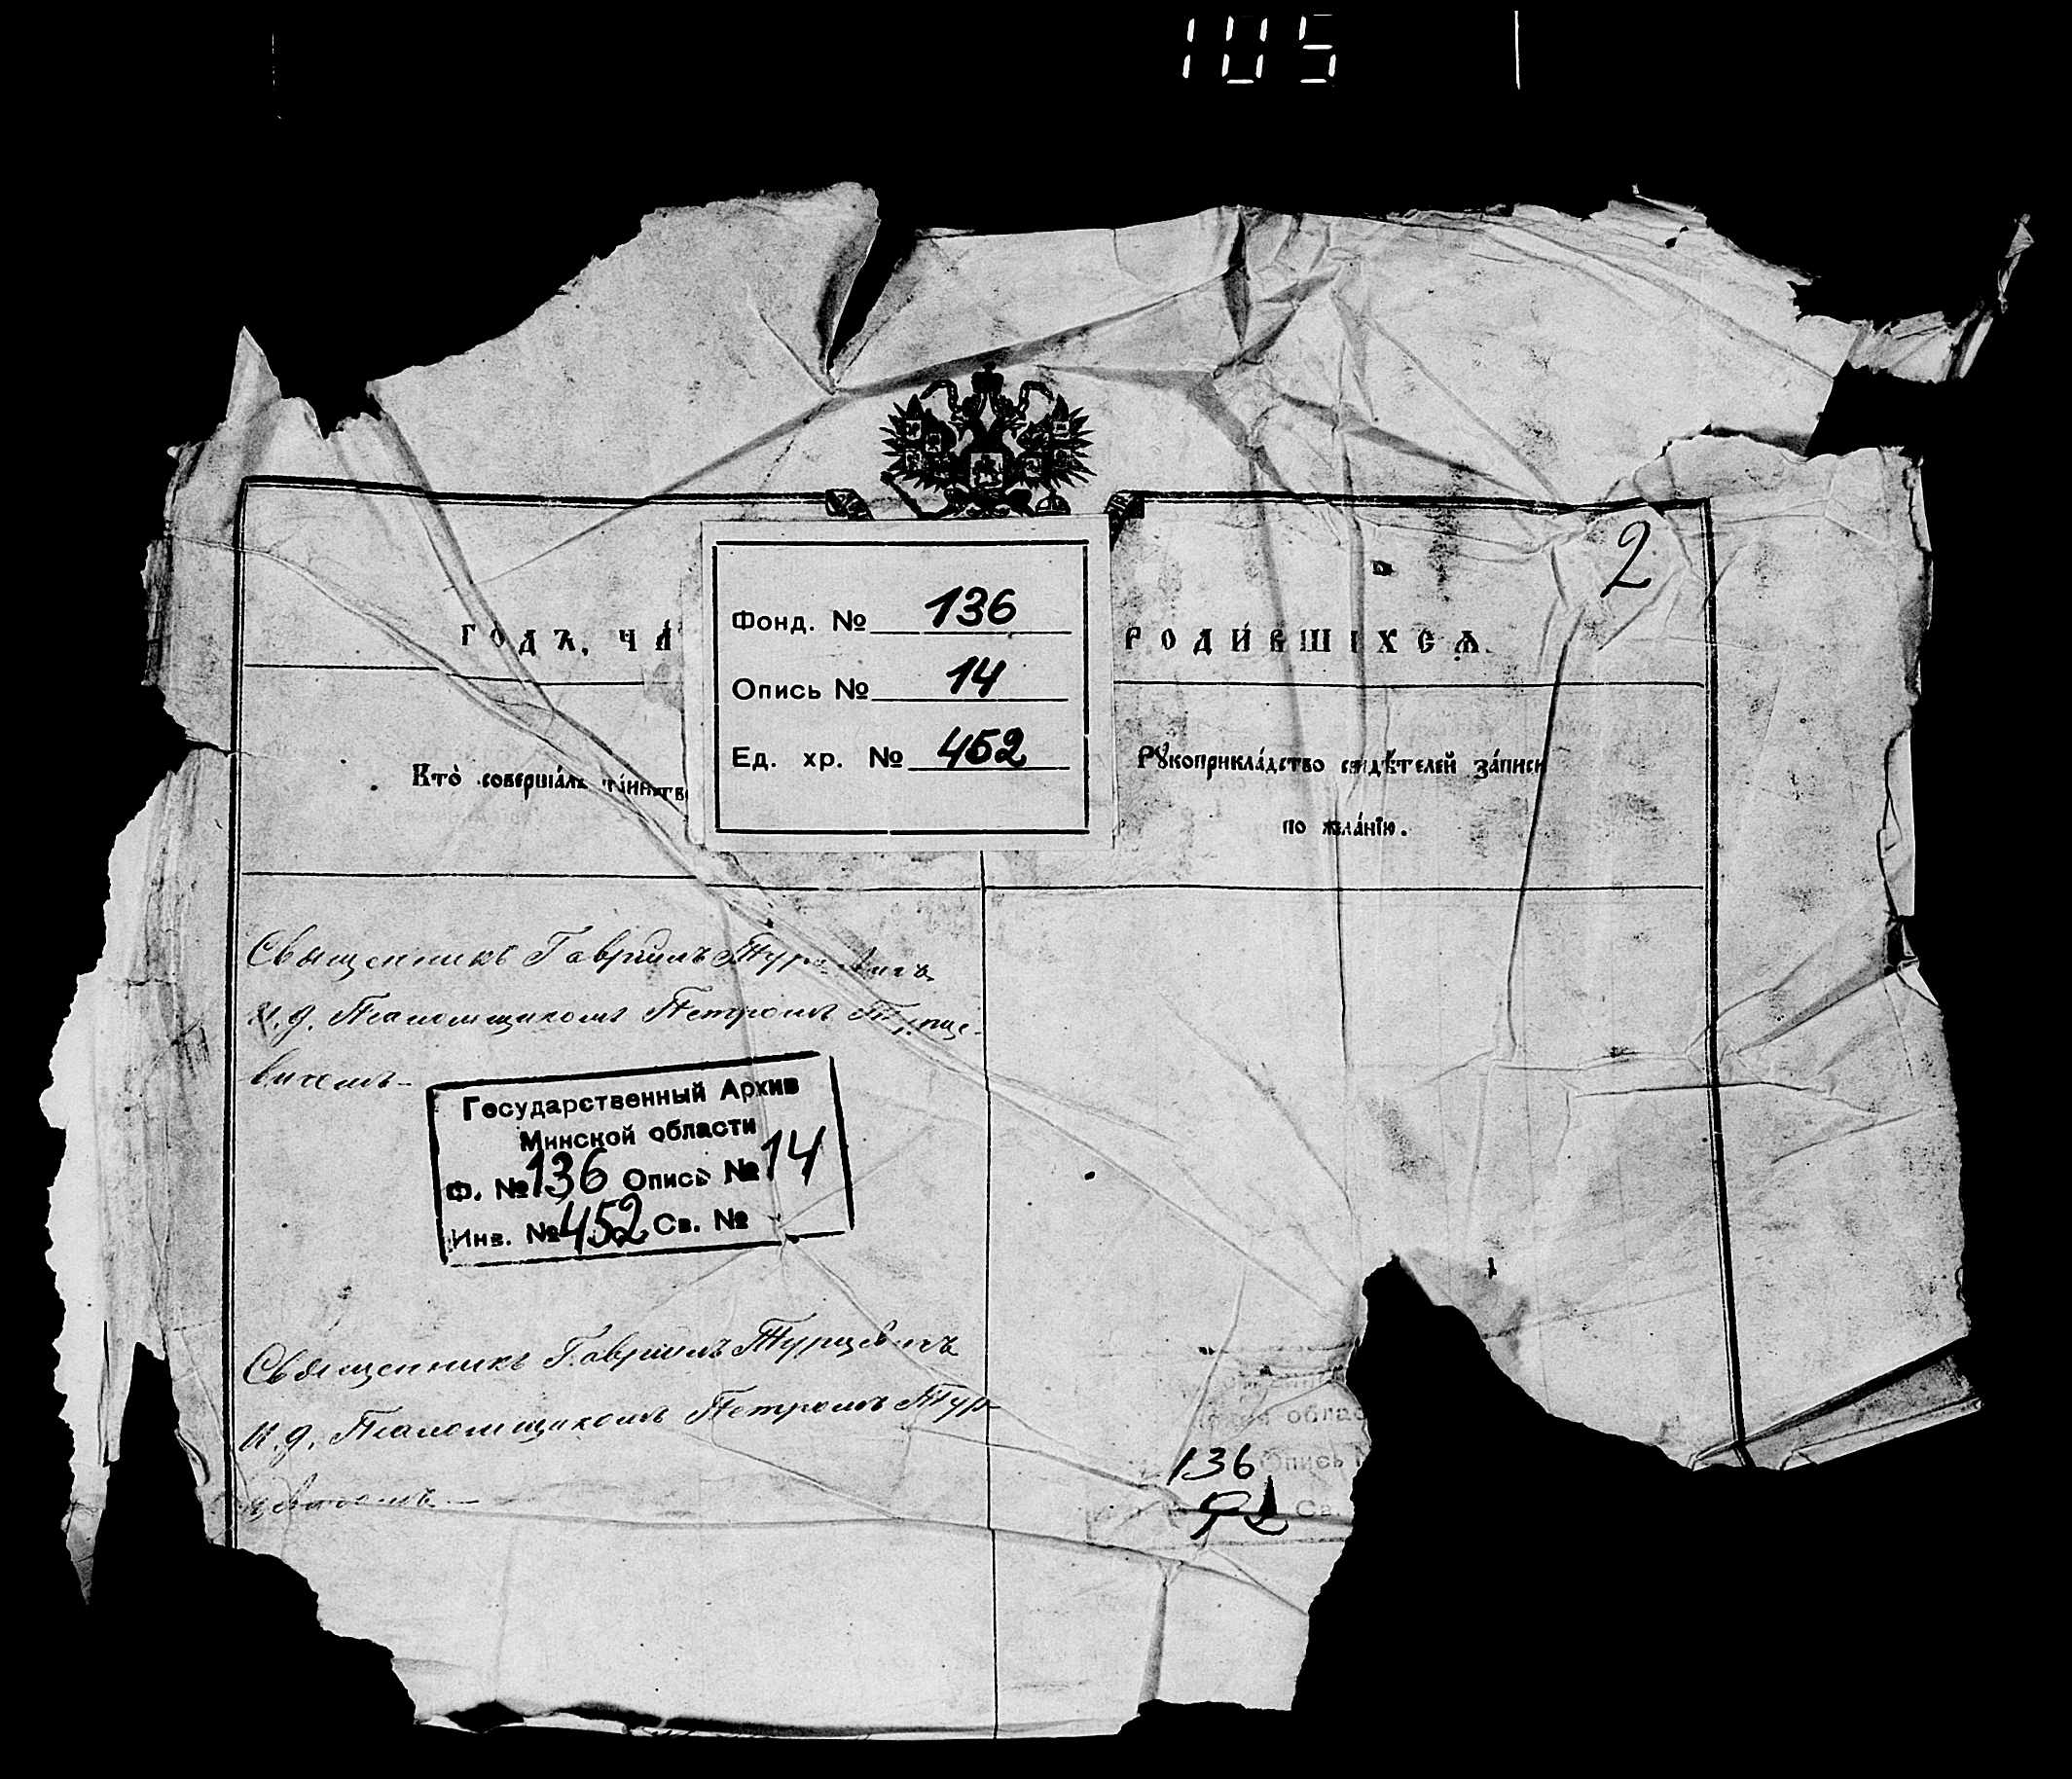 105
2
Фонд. № 136
Опись № 14
Ед. хр. № 452
ГОДЪ, ЧА
РОДИ́ВШИХСѦ.
Кто̀ соверша́лъ та́инств
Рꙋкоприкла́дство свидѣ́телей за́писи
по жела́нїю.
Священникъ Гавріилъ Турцевичъ
И. д. Псаломщикомъ Петромъ Турце-
вичемъ
Государственный Архив
Минской области
Ф. № 136 Опись № 14
Инв. № 452 Св. №
Священникъ Гавріилъ Турцевичъ
И. д. Псаломщикомъ Петромъ Тур-
цевичемъ
облас
136 Опись
Св.